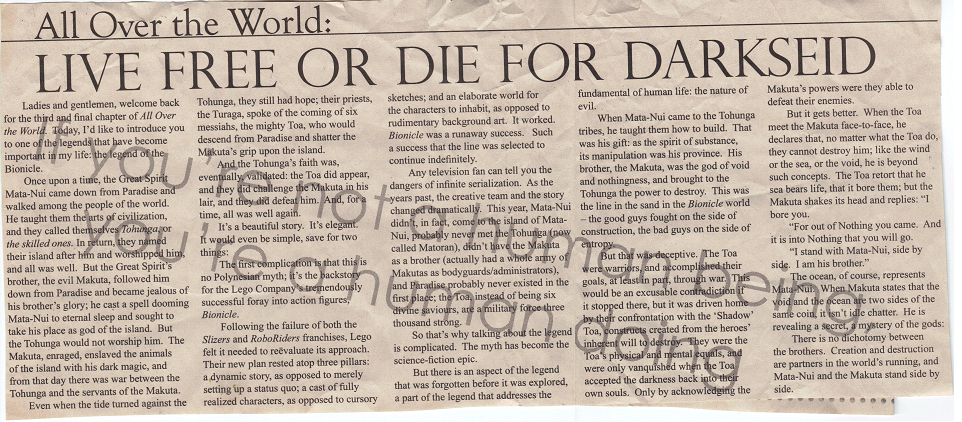 All Over the World:
LIVE FREE OR DIE FOR DARKSEID
Ladies and gentlemen, welcome back
for the third and final chapter of All Over
the World. Today, I'd like to introduce you
to one of the legends that has become
important in my life: the legend of the
Bionicle.
Once upon a time, the Great Spirit
Mata-Nui came down from Paradise and
walked among the people of the world.
He taught them the joys of civilization,
and they called themselves Tohunga, or
the skilled ones. In return, they named
their island after him and worshipped him,
and all was well. But the Great Spirit's
brother, the evil Makuta, followed him
down from Paradise and became jealous of
his brother's glory; he cast a spell dooming
Mata-Nui to eternal sleep and sought to
take his place as god of the island. But
the Tohunga would not worship him. The
Makuta, enraged, enslaved the animals
of the island with his dark magic, and
from that day there was war between the
Tohunga and the servants of the Makuta.
Even when the tide turned against the
Tohunga, they still had hope; their priests,
the Turaga, spoke of the coming of six
messiahs, the mighty Toa, who would
descend from Paradise and shatter the
Makuta's grip upon the island.
And the Tohunga's faith was,
eventually, validated: the Toa did appear,
and they did challenge the Makuta in his
lair, and they did defeat him. And, for a
time, all was well again.
It's a beautiful story. It's elegant.
It would even be simple, save for two
things.
The first complication is that this is
no Polynesian myth; it's the backstory
for the Lego Company's tremendously
successful foray into action figures,
Bionicle.
Following the failure of both the
Slizers and RoboRiders franchises, Lego
felt it needed to reevaluate its approach.
Their new plan rested atop three pillars:
a dynamic story, as opposed to merely
setting up a status quo; a cast of fully
realized characters, as opposed to cursory
sketches; and an elaborate world for
the characters to inhabit, as opposed to
rudimentary background art. It worked.
Bionicle was a runaway success. Such
a success that the line was selected to
continue indefinitely.
Any television fan can tell you the
dangers of infinite serialization. As the
years past, the creative team and the story
changed dramatically. This year, Mata-Nui
didn't, in fact, come to the island of Mata-
Nui, probably never met the Tohunga (now
called Matoran), didn't have the Makuta
as a brother (actually had a whole army of
Makutas as bodyguards/administrators),
and Paradise probably never existed in the
first place; the Toa, instead of being six
divine saviours, are a military force a
thousand strong.
So that's why talking about the legend
is complicated. The myth has become the
science-fiction epic.
But there is an aspect of the legend
that was forgotten before it was explored,
a part of the legend that addresses the
fundamental of human life: the nature of
evil.
When Mata-Nui came to the Tohunga
tribes, he taught them how to build. That
was his gift: as the spirit of substance,
its manipulation was his province. His
brother, the Makuta, was the god of void
and nothingness, and brought to the
Tohunga the power to destroy. This was
the line in the sand in the Bionicle world
– the good guys fought on the side of
construction, the bad guys on the side of
entropy.
But that was deceptive. The Toa
were warriors, and accomplished their
goals, at least in part, through war. This
would be an excusable contradiction if
it stopped there, but it was driven home
by their confrontation with the 'Shadow'
Toa, monsters created from the heroes'
inherent will to destroy. They were the
Toa's physical and mental equals, and
were only vanquished when the Toa
accepted the darkness back into their
own souls. Only by acknowledging the
Makuta's powers were they able to
defeat their enemies.
But it gets better. When the Toa
meet the Makuta face-to-face, he
declares that, no matter what the Toa do,
they cannot destroy him; like the wind
or the sea, or the void, he is beyond
such concepts. The Toa retort that he
sea bears life, that it bore them; but the
Makuta shakes its head and replies: "I
bore you.
"For out of Nothing you came. And
it is into Nothing that you will go.
"I stand with Mata-Nui, side by
side. I am his brother."
The ocean, of course, represents
Mata-Nui. When Makuta states that the
void and the ocean are two sides of the
same coin, it isn't idle chatter. He is
revealing a sacred mystery of the gods:
There is no dichotomy between
the brothers. Creation and destruction
are partners in the world's running, and
Mata-Nui and the Makuta stand side by
side.
If you're not a human being,
you're a human doing